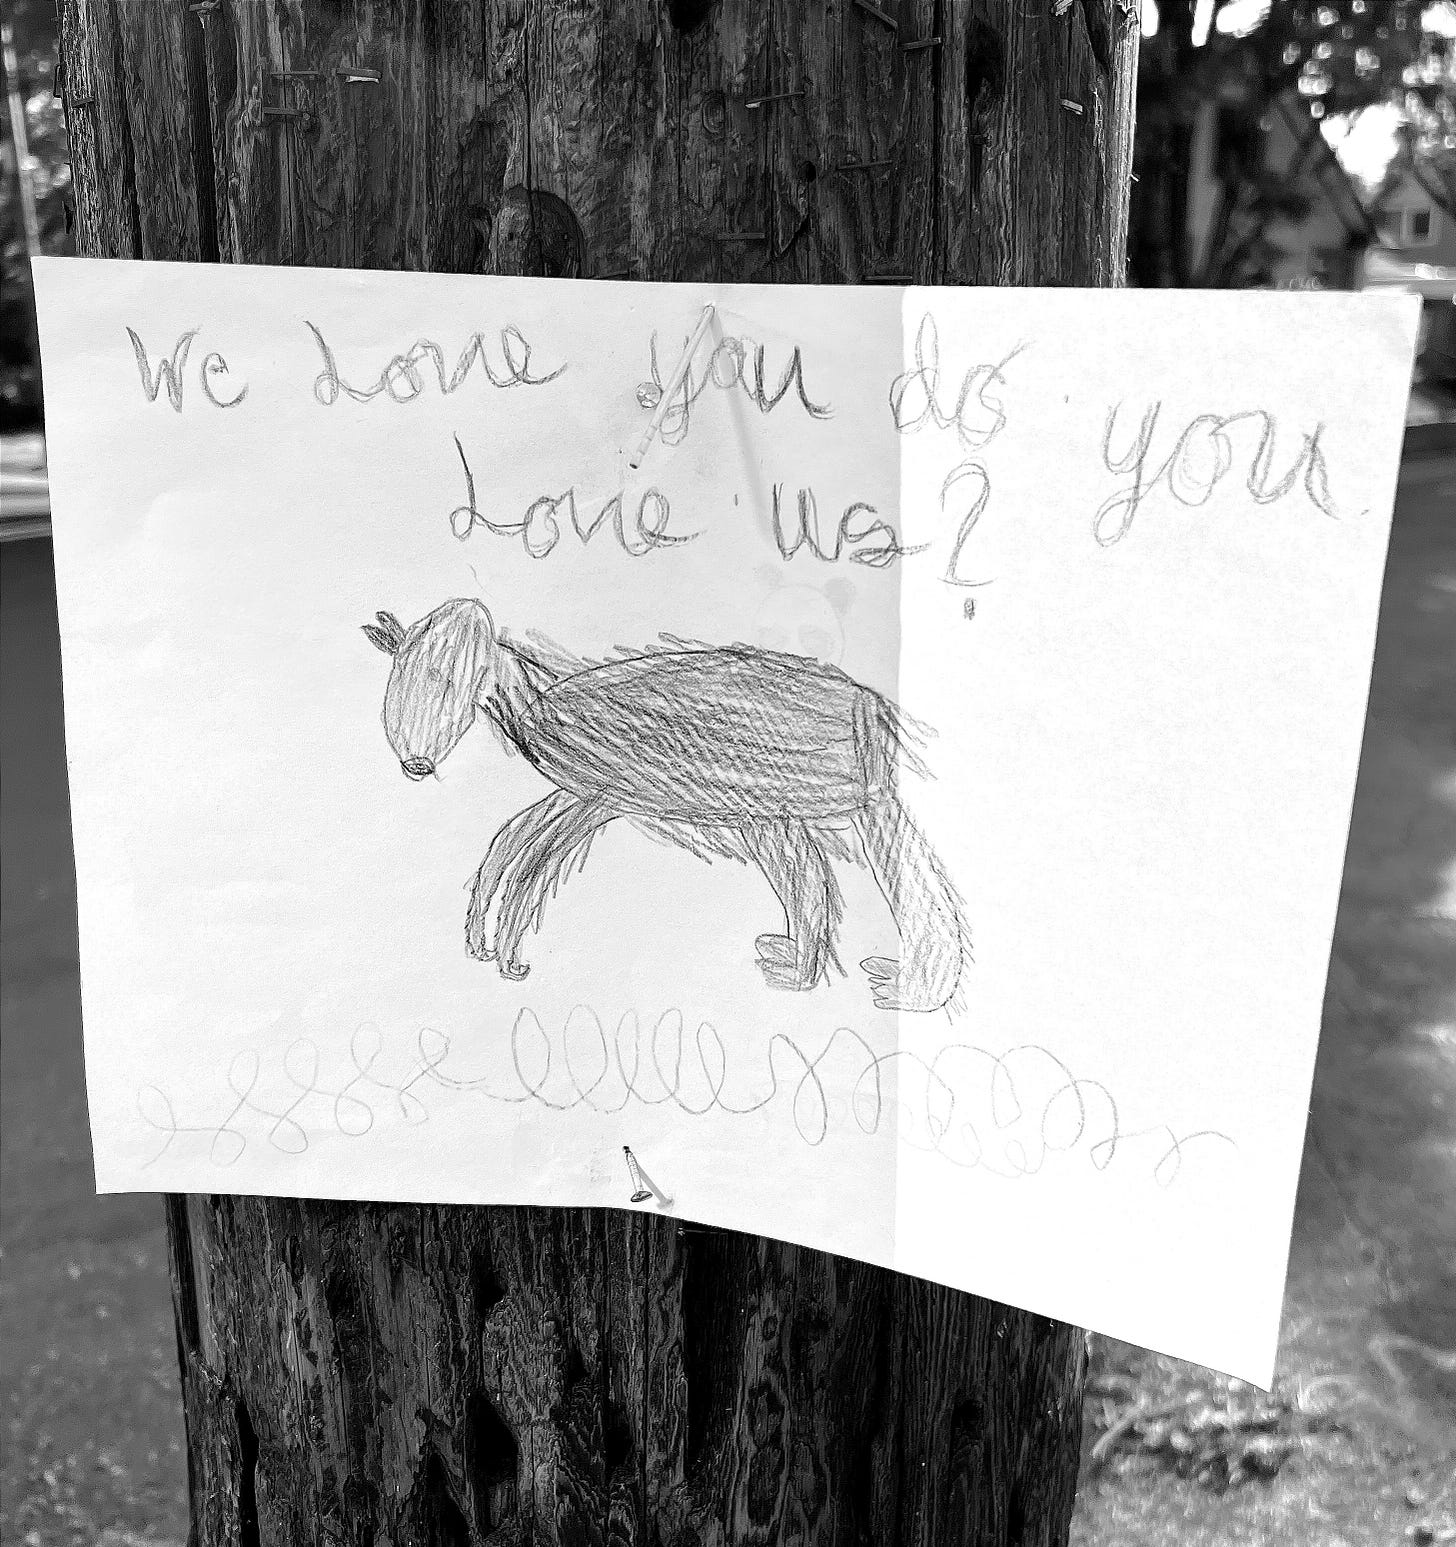 We Love you do you
Love us?